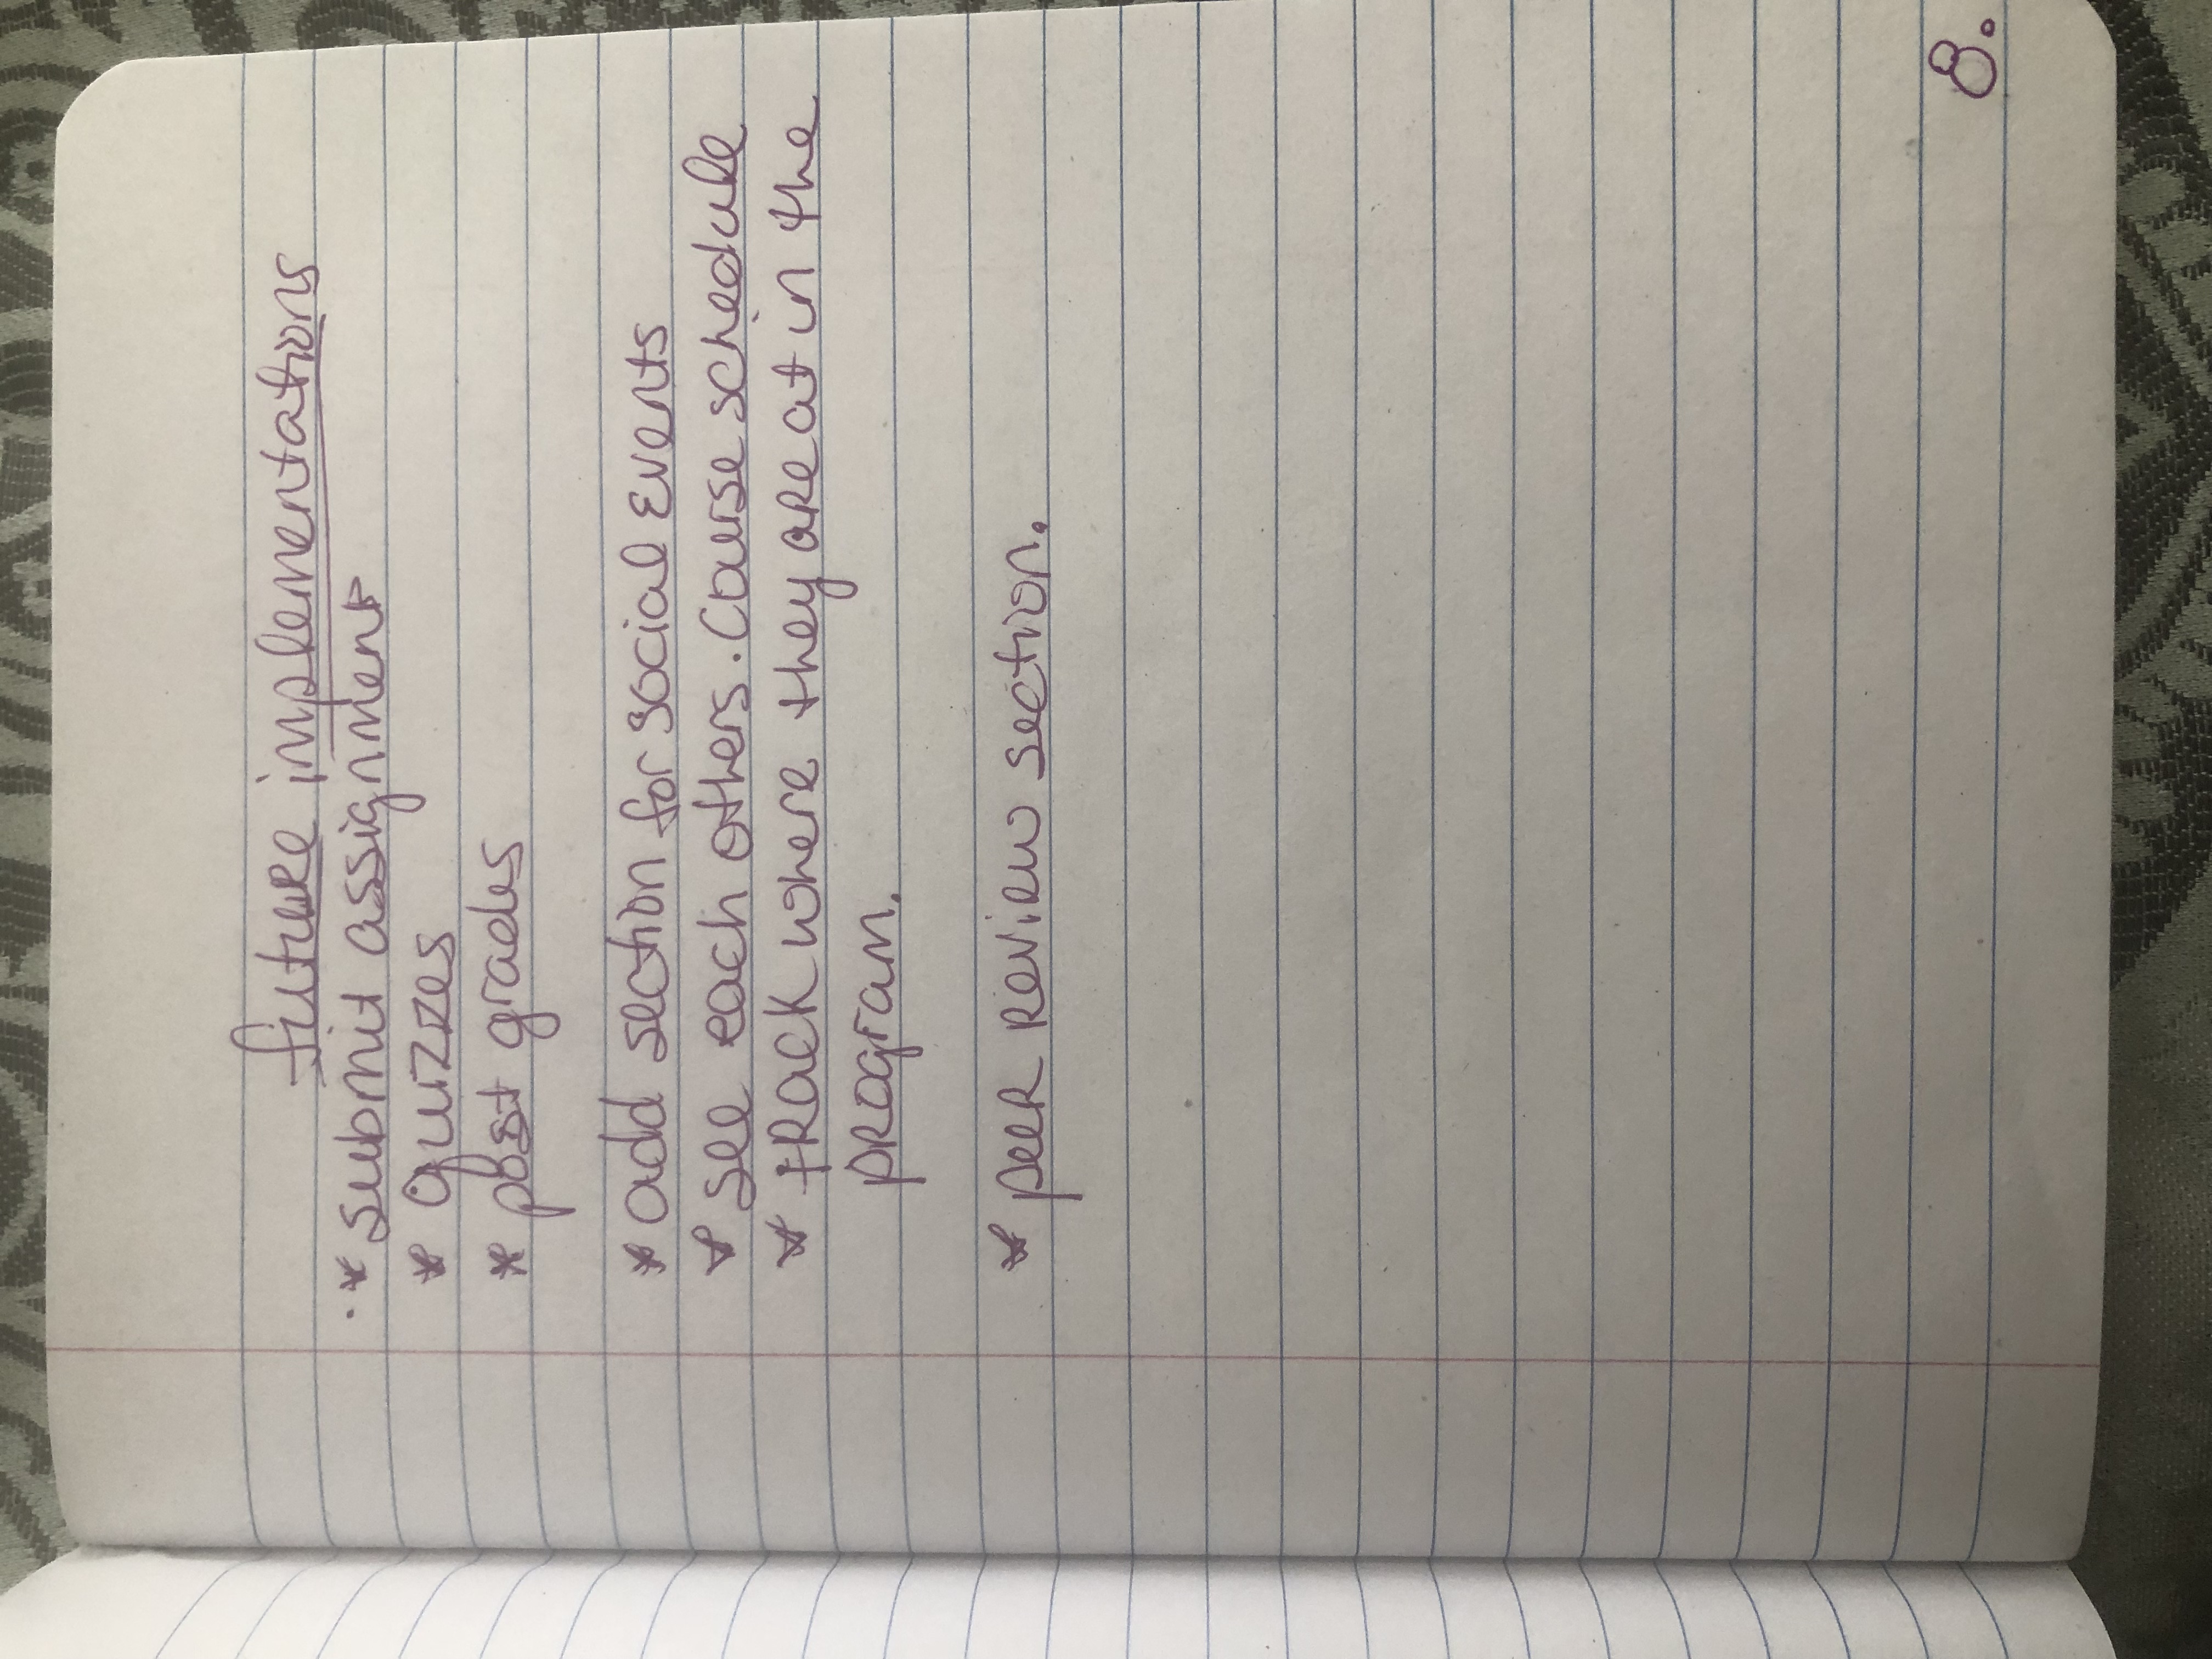 future implementations
* submit assignment
* quizzes
* post grades
* add section for social Events
* see each others. Course schedule
* tRack where they are at in the
program.
* peer review section.
8.